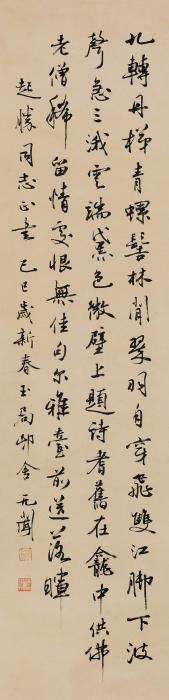 九轉丹梯青螺髻林間翠羽自穿飛雙江腳下波
聲急三峨雲端黛色微壁上題詩耆舊在龕中供佛
老僧稀留情處恨無佳句爾雅臺前送落暉
起勝同志正 己巳歲新春玉局邨舍元聞